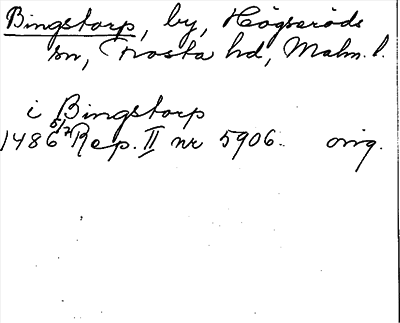 Bingstorp, by, Högseröds
sn, Frosta hd, Malm. l.
i Bingstorp
1486 5/2 Rep. II nr 5906. orig.